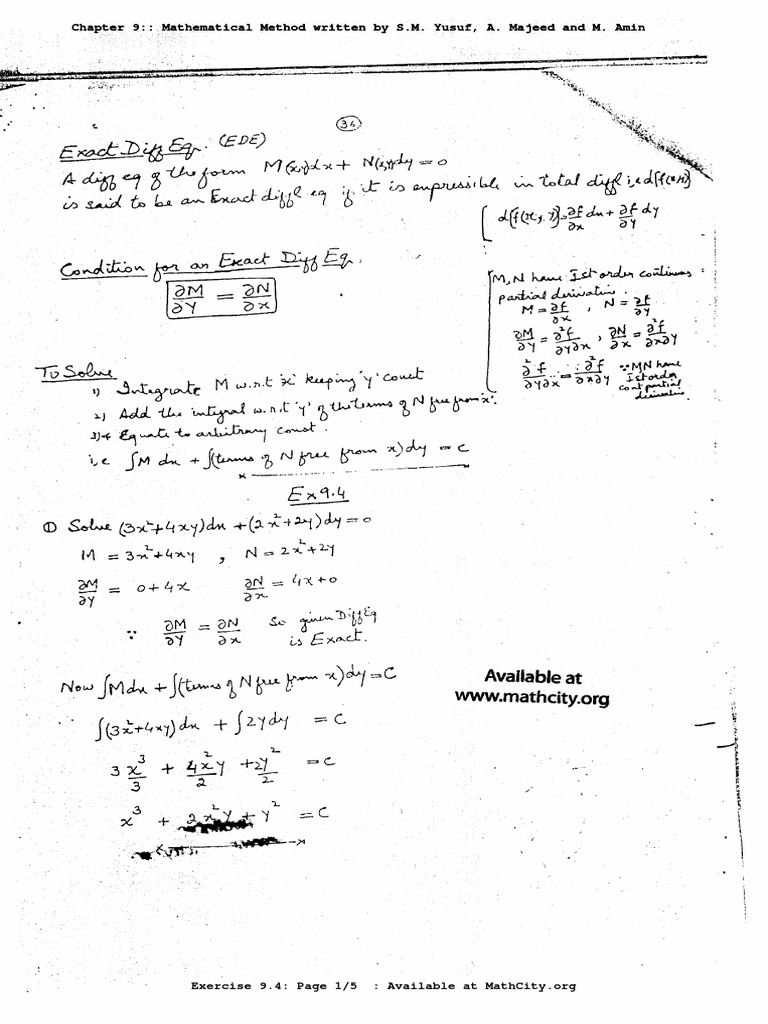 Chapter 9:: Mathematical Method written by S.M. Yusuf, A. Majeed and M. Amin
36
Exact Diff Eq. (EDE)
A diff eq of the form M(x,y)dx + N(x,y)dy = 0
is said to be an Exact diffl eq if it is expressible in total diffl i.e d[f(x,y)]
[ d[f(x,y)] = ∂f/∂x dx + ∂f/∂y dy
Condition for an Exact Diff Eq.
∂M/∂Y = ∂N/∂x
M,N have Ist order continuous
partial derivative.
M = ∂f/∂x , N = ∂f/∂y
∂M/∂Y = ∂²f/∂y∂x , ∂N/∂x = ∂²f/∂x∂y
∂²f/∂y∂x = ∂²f/∂x∂y ∵ MN have
Ist order
cont partial
derivative.
To Solve
1) Integrate M w.r.t 'x' keeping 'y' const
2) Add the integral w.r.t 'y' of the terms of N free from 'x'.
3) & Equate to arbitrary const.
i,e ∫M dx + ∫(terms of N free from x)dy = C
Ex 9.4
① Solve (3x²+4xy)dx + (2x²+2y)dy = 0
M = 3x²+4xy , N = 2x²+2y
∂M/∂Y = 0+4x ∂N/∂x = 4x+0
∵ ∂M/∂Y = ∂N/∂x So given Diff Eq
is Exact.
Now ∫Mdx + ∫(terms of N free from x)dy = C
∫(3x²+4xy)dx + ∫2ydy = C
3x³/3 + 4x²y/2 + 2y²/2 = C
x³ + 2x²y + y² = C
Available at
www.mathcity.org
Exercise 9.4: Page 1/5 : Available at MathCity.org